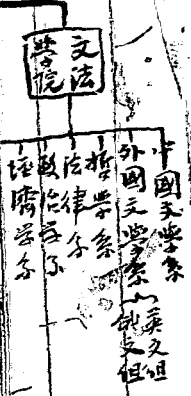 文法
學院
中國文學系
外國文學系
英文組
俄文組
哲學系
法律系
政治學系
經濟学系